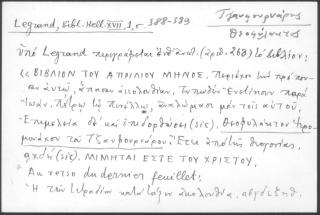 Legrand, Bibl. Hell. XVII, 1, σ. 388-389
Τζανφουρνάρης
Θεοφύλακτος
Ὑπὸ Legrand περιγράφεται ὑπ' ἀριθ. (ἀριθ. 268) τὸ βιβλίον:
«ΒΙΒΛΙΟΝ ΤΟΥ ΑΠΡΙΛΙΟΥ ΜΗΝΟΣ, Περιέχον
αὐτῷ, ἅπασαν ἀκολουθίαν, Τυπωθὲν Ἐνετίησιν παρὰ
Ἰωάν. Πέτρῳ τῷ Πινέλλῳ, ἀναλώμασι μὲν τοῖς αὐτοῦ,
Ἐπιμελείᾳ δὲ καὶ ἐπιδορθώσει (sic), Θεοφυλάκτου Ἱερο-
μονάχου τοῦ Τζανφουρνάρου. Ἔτει ἀπὸ τῆς θεογονίας,
αχδῇ (sic). ΜΙΜΗΤΑΙ ΕΣΤΕ ΤΟΥ ΧΡΙΣΤΟΥ.
Au recto du dernier feuillet:
Ἡ τῶν τετραδίων ἀκολουθία,